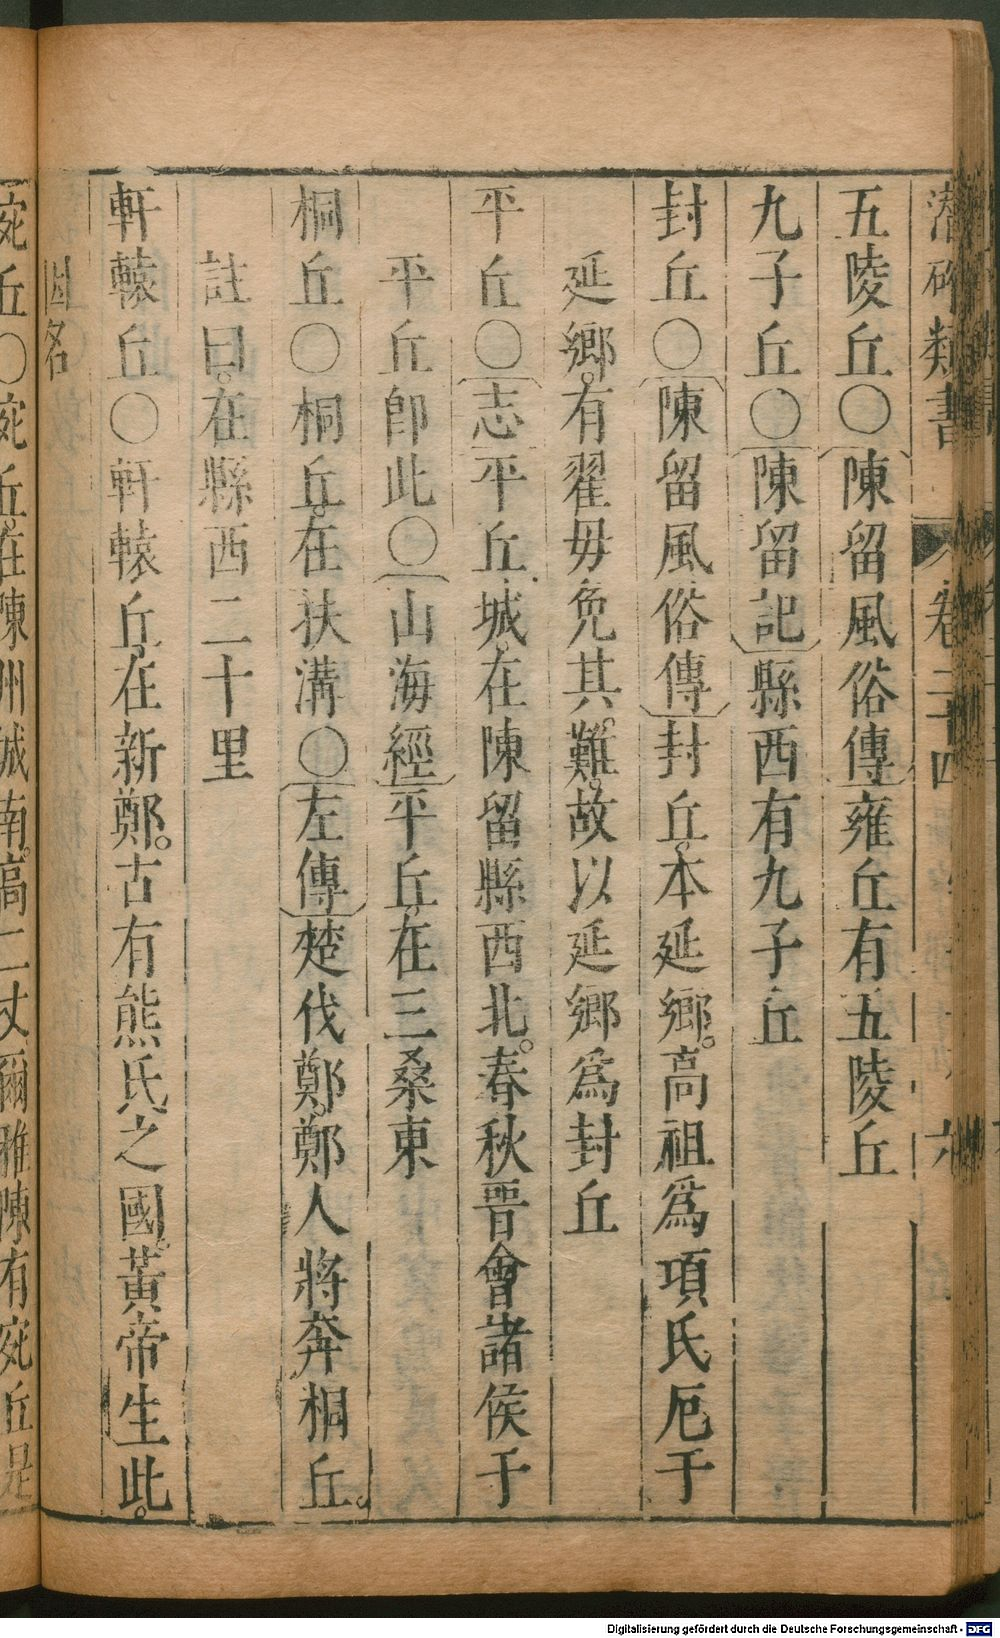 潜確類書 卷二十四 六
五陵丘○陳留風俗傳雍丘有五陵丘
九子丘○陳留記縣西有九子丘
封丘○陳留風俗傳封丘。本延鄉。高祖爲項氏厄于
延鄉。有翟毋免其難。故以延鄉爲封丘
平丘○志平丘城。在陳留縣西北。春秋晉會諸侯于
平丘卽此○山海經平丘。在三桑東
桐丘○桐丘。在扶溝○左傳楚伐鄭。鄭人將奔桐丘。
註曰。在縣西二十里
軒轅丘○軒轅丘。在新鄭。古有熊氏之國。黃帝生此。
因名
宛丘○宛丘。在陳州城南。高二丈爾雅陳有宛丘是
Digitalisierung gefördert durch die Deutsche Forschungsgemeinschaft - DFG